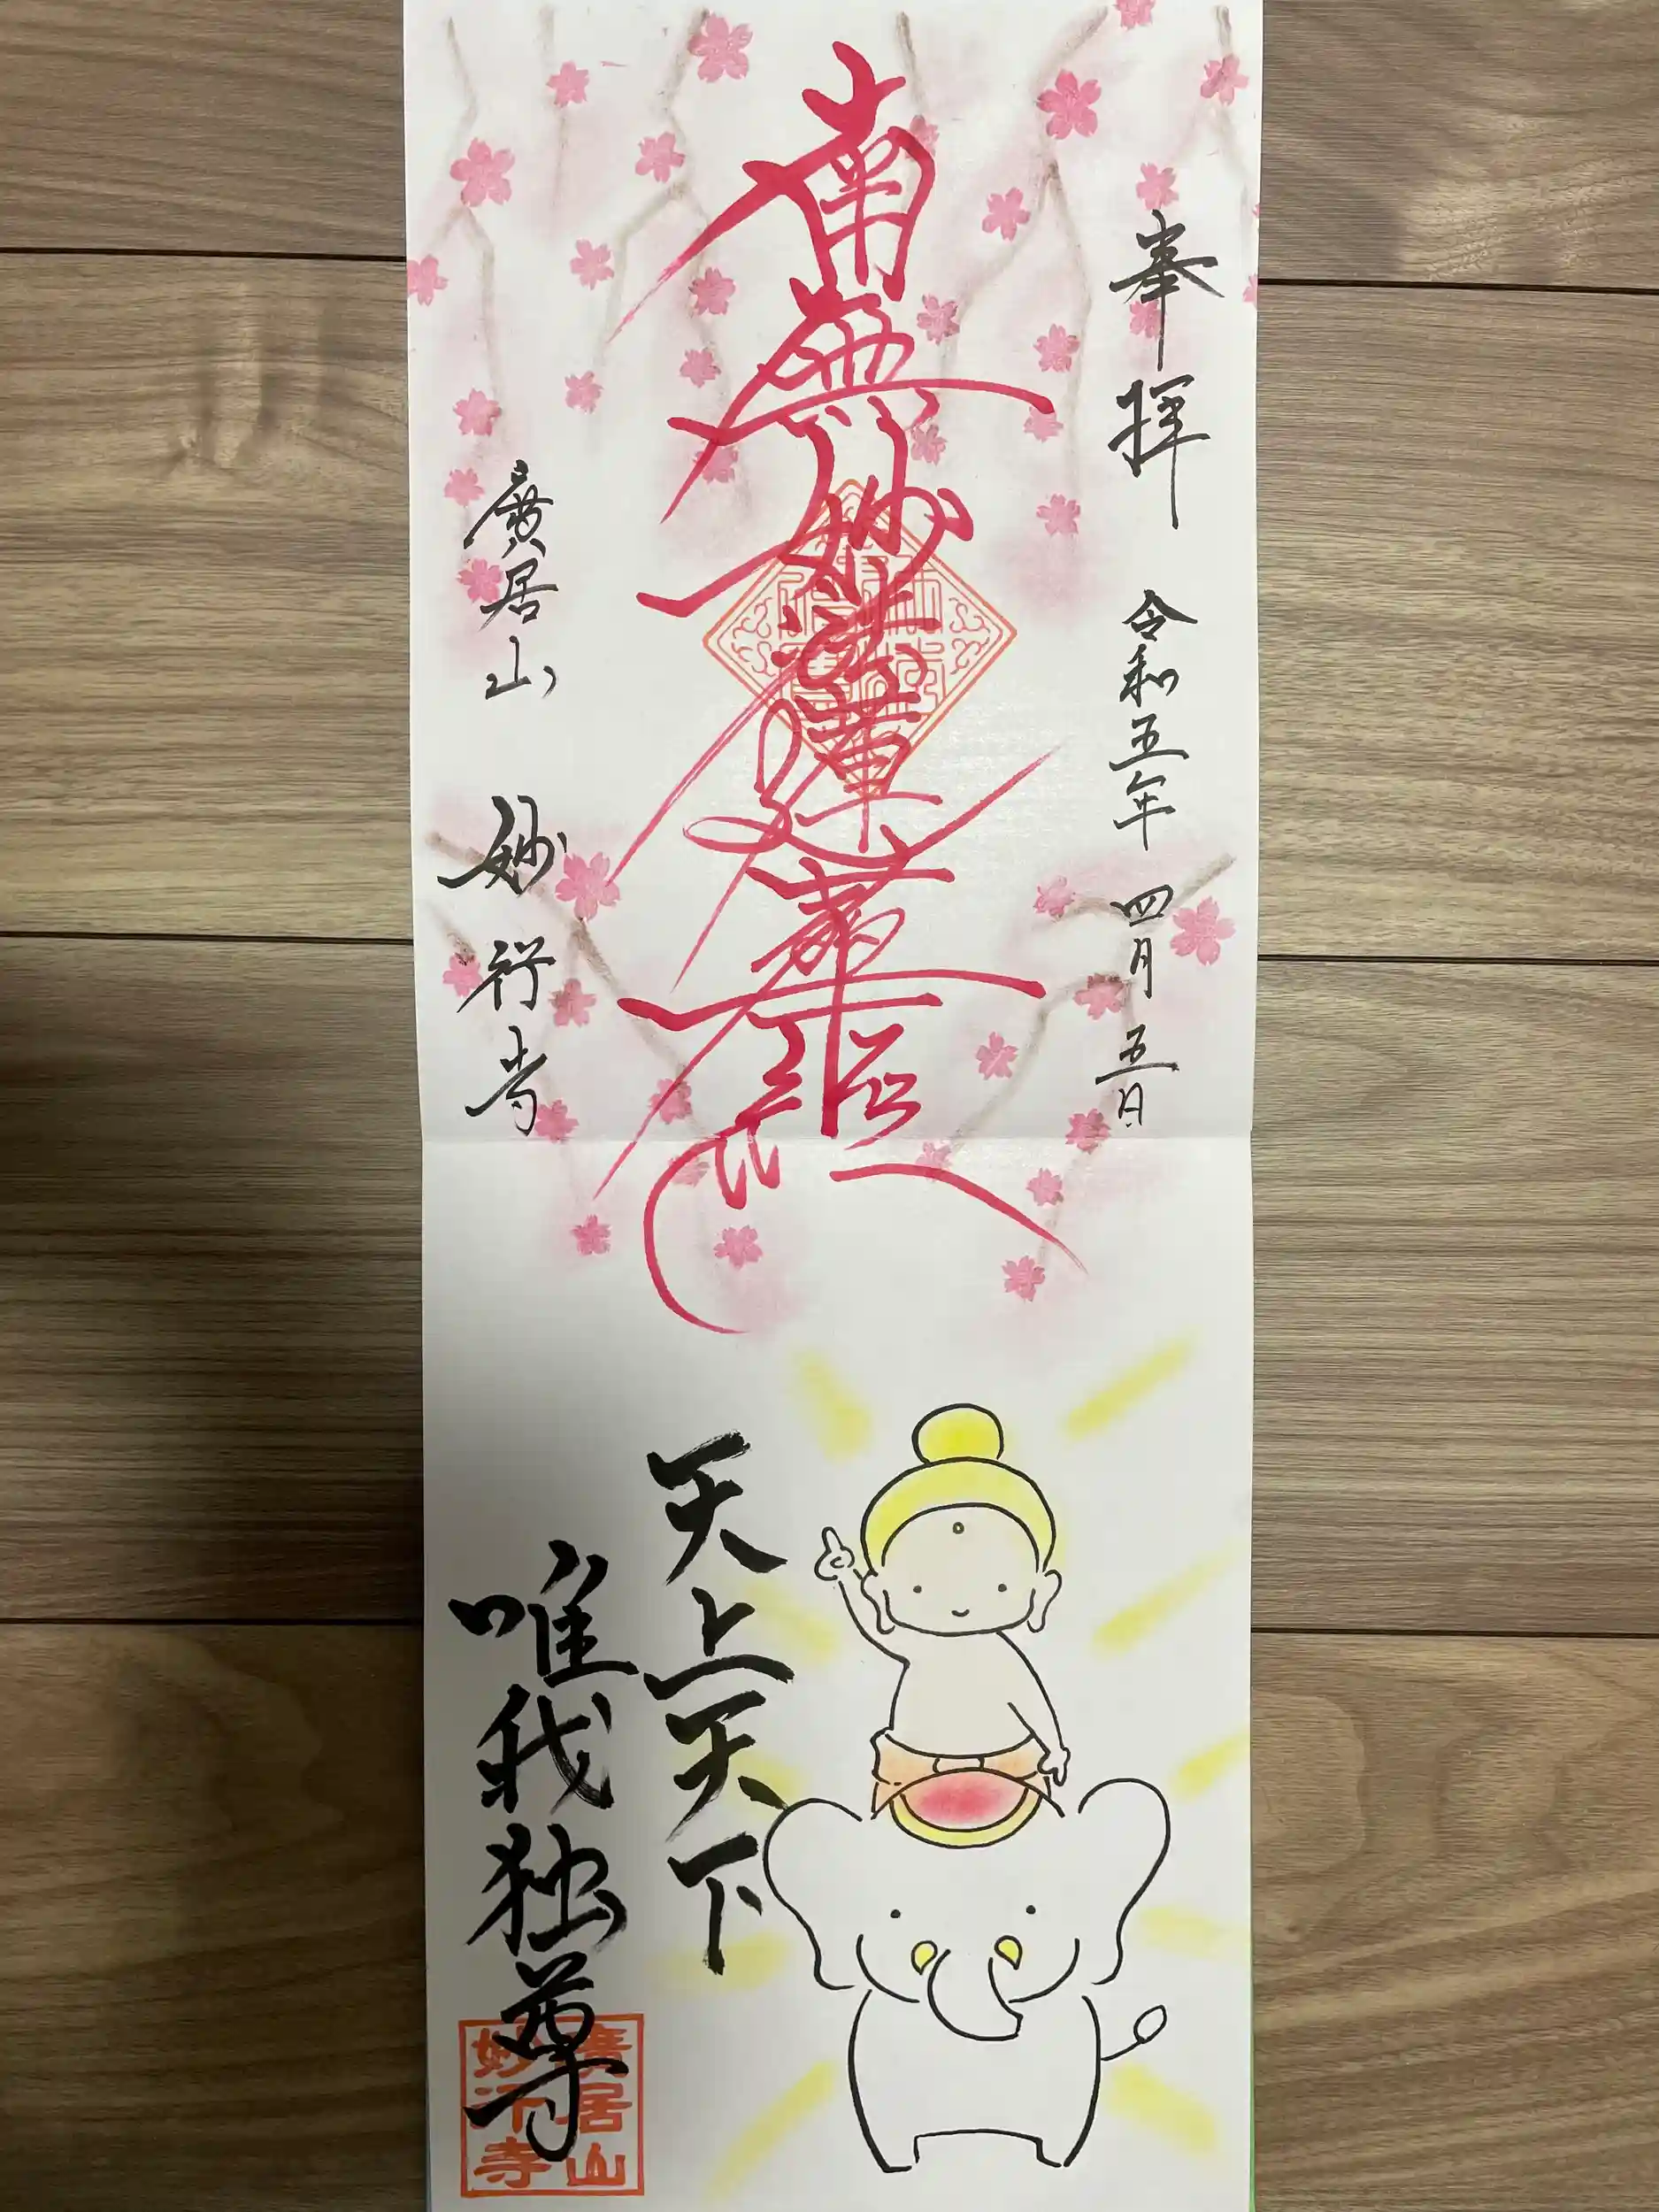 奉拝 令和五年 四月 五日
南無妙法蓮華経
廣居山 妙行寺
天上天下
唯我独尊
廣居山
妙行寺